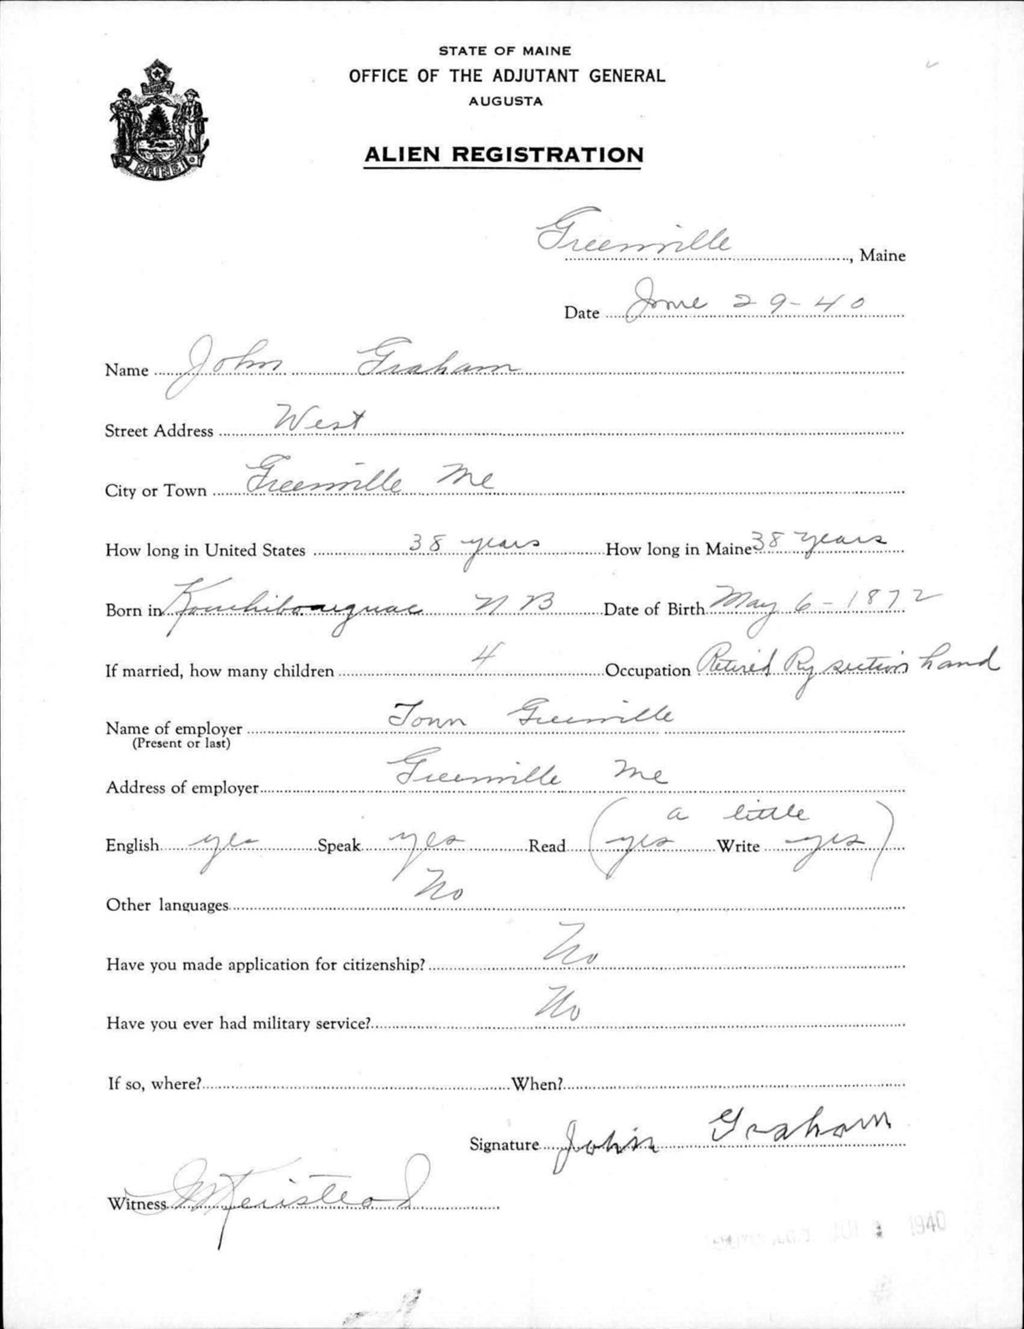 STATE OF MAINE
OFFICE OF THE ADJUTANT GENERAL
AUGUSTA
ALIEN REGISTRATION
MAINE
Greenville, Maine
Date June 29-40
Name John Graham
Street Address West
City or Town Greenville Me
How long in United States 38 years How long in Maine 38 years
Born in Kouchibouguac N B Date of Birth May 6-1872
If married, how many children 4 Occupation Retired Ry section hand
Name of employer Town Greenville
(Present or last)
Address of employer Greenville Me
a little
English yes Speak yes Read (yes Write yes)
Other languages No
Have you made application for citizenship? No
Have you ever had military service? No
If so, where? When?
Signature John Graham
Witness
1940